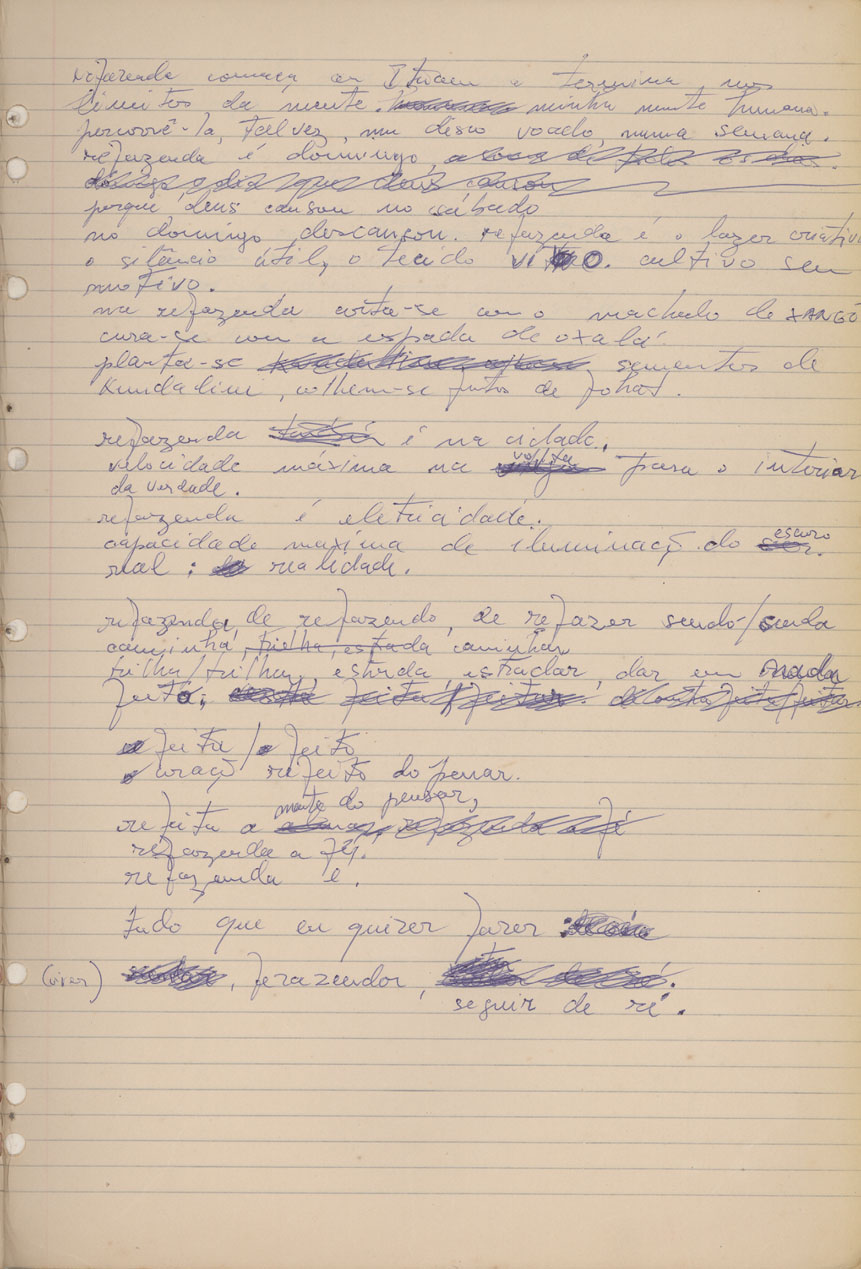 refazenda começa em Ituaçu e termina nos
limites da mente. minha mente humana.
percorrê-la, talvez, num disco voado, numa semana.
refazenda é domingo,
porque deus cansou no sábado
no domingo descansou. refazenda é o lazer criativo
o silêncio útil, o tecido vivo. cultivo sem
motivo.
na refazenda corta-se com o machado de XANGÔ
cura-se com a espada de oxalá.
planta-se sementes de
Kundalini, colhem-se frutos de fohat.
refazenda é na cidade.
velocidade máxima na volta para o interior
da verdade.
refazenda é eletricidade.
capacidade máxima de iluminaçã do escuro
real: realidade.
refazenda, de refazendo, de refazer sendo/senda
caminha, trilha, estrada caminhar
trilha/trilhar, estrada, estradar, dar em nada
feito,
feita/ feito
coraçã refeito do penar.
refeita a mente do pensar,
refazenda a fé.
refazenda é.
tudo que eu quizer fazer
(viver) , ferazendor,
seguir de ré.